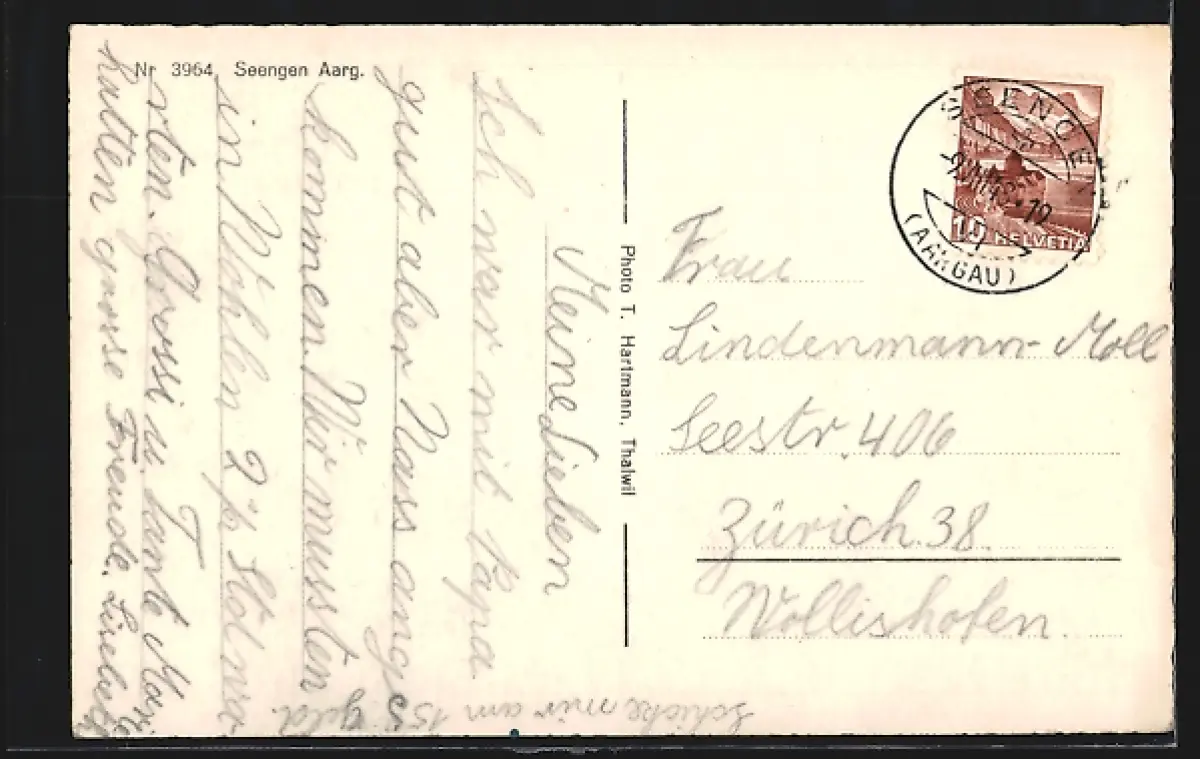 Nr. 3964 Seengen Aarg.
Meine Lieben
Ich war mit Papa
gut aber Nass ange
kommen. Wir mussten
in Wohlen 2½ Std. wa
rten. Grossi u. Tante Mari
hatten grosse Freude.
Schicke mir am 15 5 Geld.
Photo T. Hartmann, Thalwil
SEENGEN
(AARGAU)
10 HELVETIA
Frau
Lindenmann-Moll
Seestr. 406
Zürich 38.
Wollishofen.